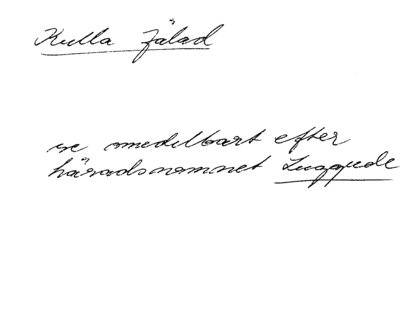 Kulla Fälad
se omedelbart efter
häradsnamnet Luggude